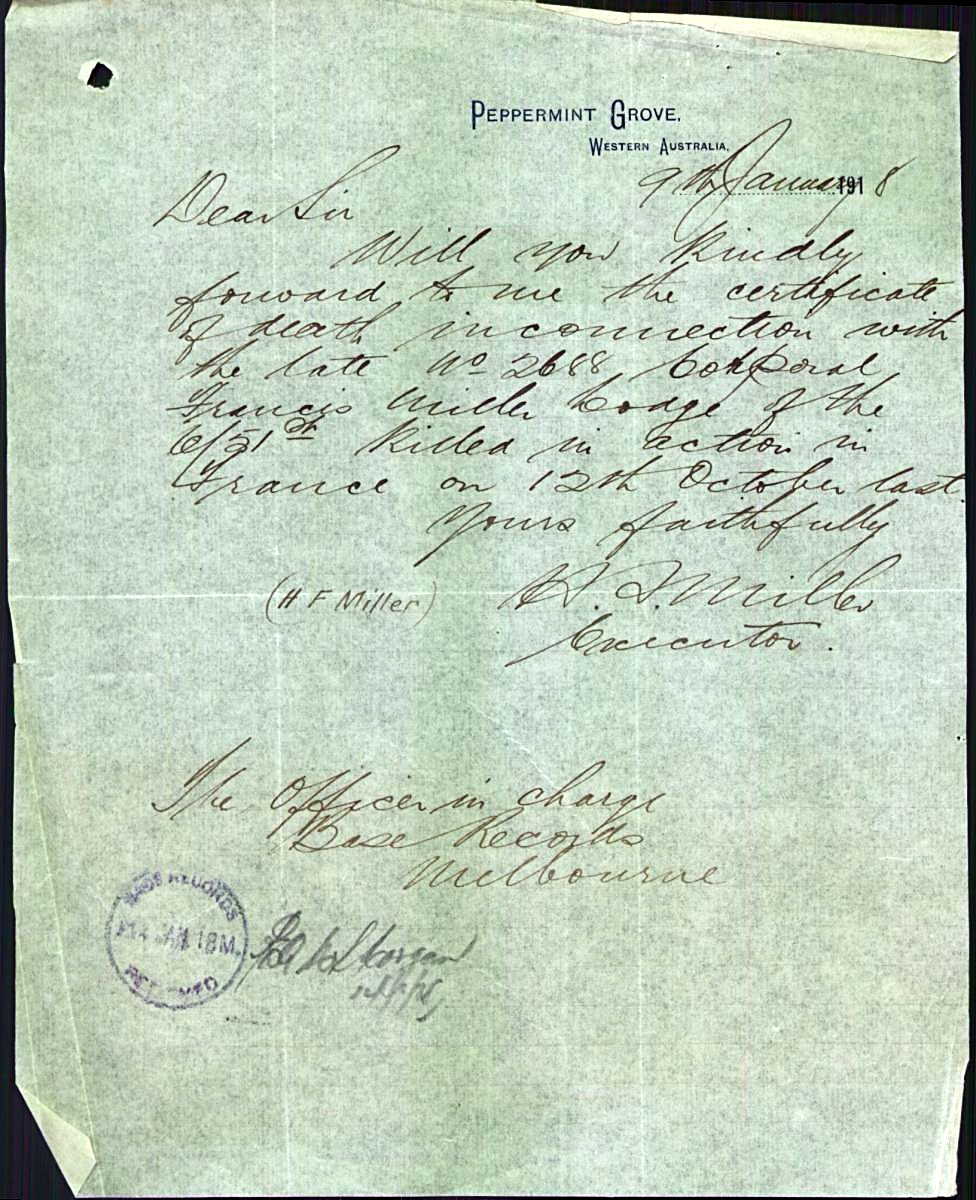 PEPPERMINT GROVE,
WESTERN AUSTRALIA,
9th January 1918
Dear Sir
Will you kindly
forward to me the certificate
of death in connection with
the late No 2688 Corporal
Francis Miller Codge of the
6/51st killed in action in
France on 12th October last.
Yours faithfully
H. F. Miller
(H F Miller)
Executor.
The Officer in charge
Base Records
Melbourne
BASE RECORDS
14 JAN 18
RECEIVED